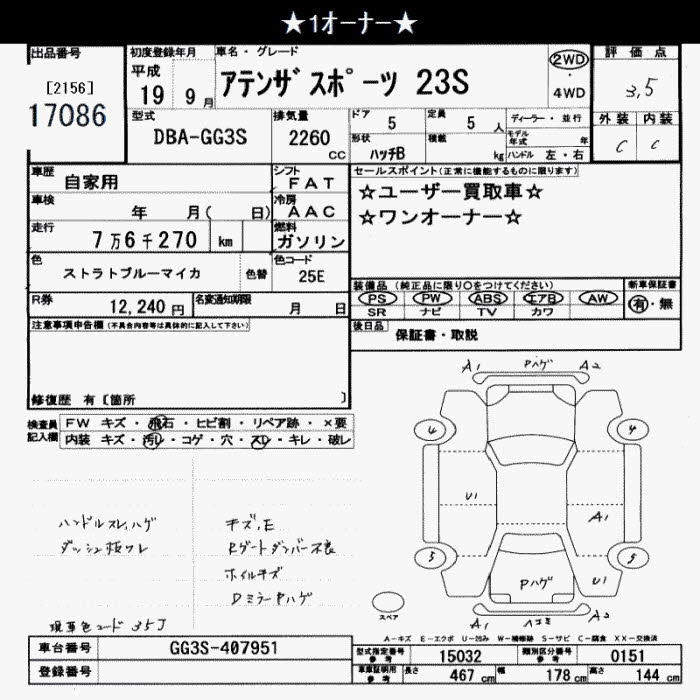 ★1オーナー★
出品番号
[2156]
17086
初度登録年月
平成
19 9月
車名・グレード
アテンザスポーツ 23S
2WD
・
4WD
評価点
3.5
外装 内装
C C
型式
DBA-GG3S
排気量
2260
CC
ドア
5
形状
ハッチB
定員
5 人
積載
kg
ディーラー・並行
モデル年式 年
ハンドル 左・右
車歴
自家用
シフト
FAT
車検
年 月( 日)
冷房
AAC
走行
7万6千270 km
燃料
ガソリン
色
ストラトブルーマイカ
色替
色コード
25E
R券
12,240 円
名変通知期限
月 日
セールスポイント(正常に機能するものに限ります)
☆ユーザー買取車☆
☆ワンオーナー☆
装備品(純正品に限り○をつけてください)
PS PW ABS エアB AW
SR ナビ TV カワ
新車保証書
有・無
後日品
保証書・取説
注意事項申告欄(不具合内容等は具体的に記入して下さい)
修復歴 有〔箇所 〕
検査員記入欄
FW キズ・飛石・ヒビ割・リペア跡・×要
内装 キズ・汚レ・コゲ・穴・スレ・キレ・破レ
ハンドルスレ,ハゲ
ダッシュ板ワレ
キズ,E
Rゲートダンパー不良
ホイルキズ
DミラーPハゲ
現車色コード 35J
A1 Pハゲ A2
4 4
U1
A1
5 5
Pハゲ
U1
A1 ヘコミ A2
スペア
A-キズ E-エクボ U-凹み W-補修跡 S-サビ C-腐食 XX-交換済
車台番号
GG3S-407951
登録番号
型式指定番号
参考
15032
類別区分番号
参考
0151
車庫証明用
参考
長さ 467 cm 幅 178 cm 高さ 144 cm